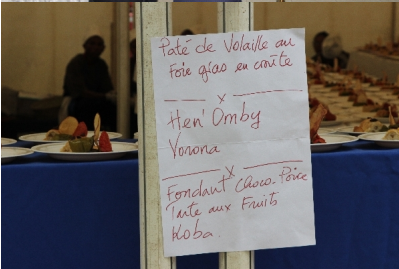 Paté de Volaille au
Foie gras en croûte
x
Hen'Omby
Vorona
x
Fondant Choco-Poire
Tarte aux Fruits
Koba.